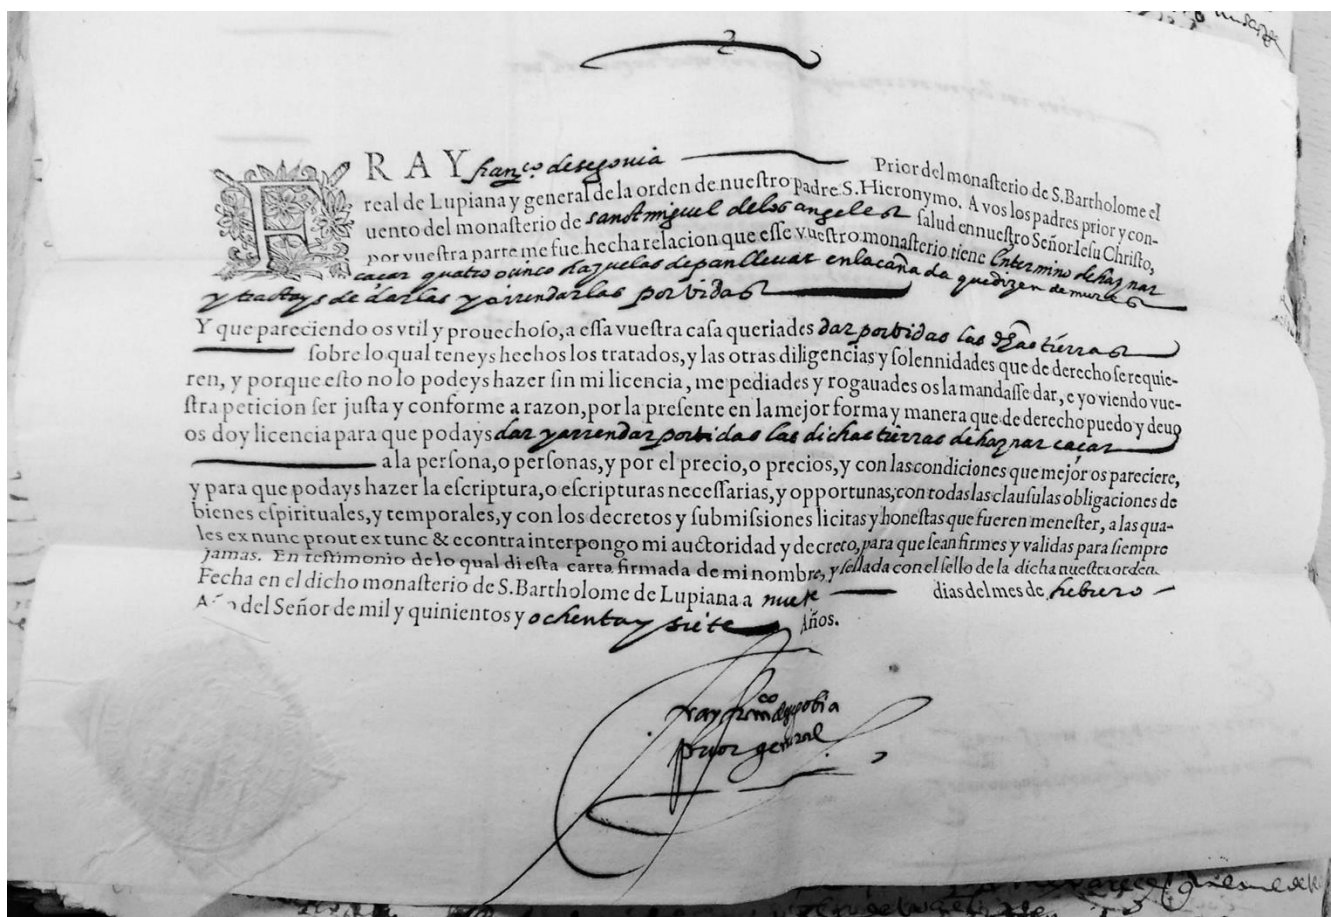 FRAY fran.co de segouia Prior del monasterio de S. Bartholome el
real de Lupiana y general de la orden de nuestro padre S. Hieronymo. A vos los padres prior y con-
uento del monasterio de sanct miguel de los angeles salud en nuestro Señor Iesu Christo,
por vuestra parte me fue hecha relacion que esse vuestro monasterio tiene En termino de haznar
caçar quatro o cinco haçuelas de pan lleuar en la cañada que dizen de mures
y tractays de darlas y arrendarlas por vidas
Y que pareciendo os vtil y prouechoso, a essa vuestra casa queriades dar por bidas las dhas tierras
sobre lo qual teneys hechos los tratados, y las otras diligencias y solennidades que de derecho se requie-
ren, y porque esto no lo podeys hazer sin mi licencia, me pediades y rogauades os la mandasse dar, e yo viendo vue-
stra peticion ser justa y conforme a razon, por la presente en la mejor forma y manera que de derecho puedo y deuo
os doy licencia para que podays dar y arrendar por bidas las dichas tierras de haznar caçar
a la persona, o personas, y por el precio, o precios, y con las condiciones que mejor os pareciere,
y para que podays hazer la escriptura, o escripturas necessarias, y opportunas, con todas las clausulas obligaciones de
bienes espirituales, y temporales, y con los decretos y submissiones licitas y honestas que fueren menester, a las qua-
les ex nunc prout ex tunc & econtra interpongo mi auctoridad y decreto, para que sean firmes y validas para siempre
jamas. En testimonio de lo qual di esta carta firmada de mi nombre, y sellada con el sello de la dicha nuestra orden.
Fecha en el dicho monasterio de S. Bartholome de Lupiana a nueue dias del mes de hebrero
Año del Señor de mil y quinientos y ochenta y siete Años.
fray fr.co de segobia
prior general